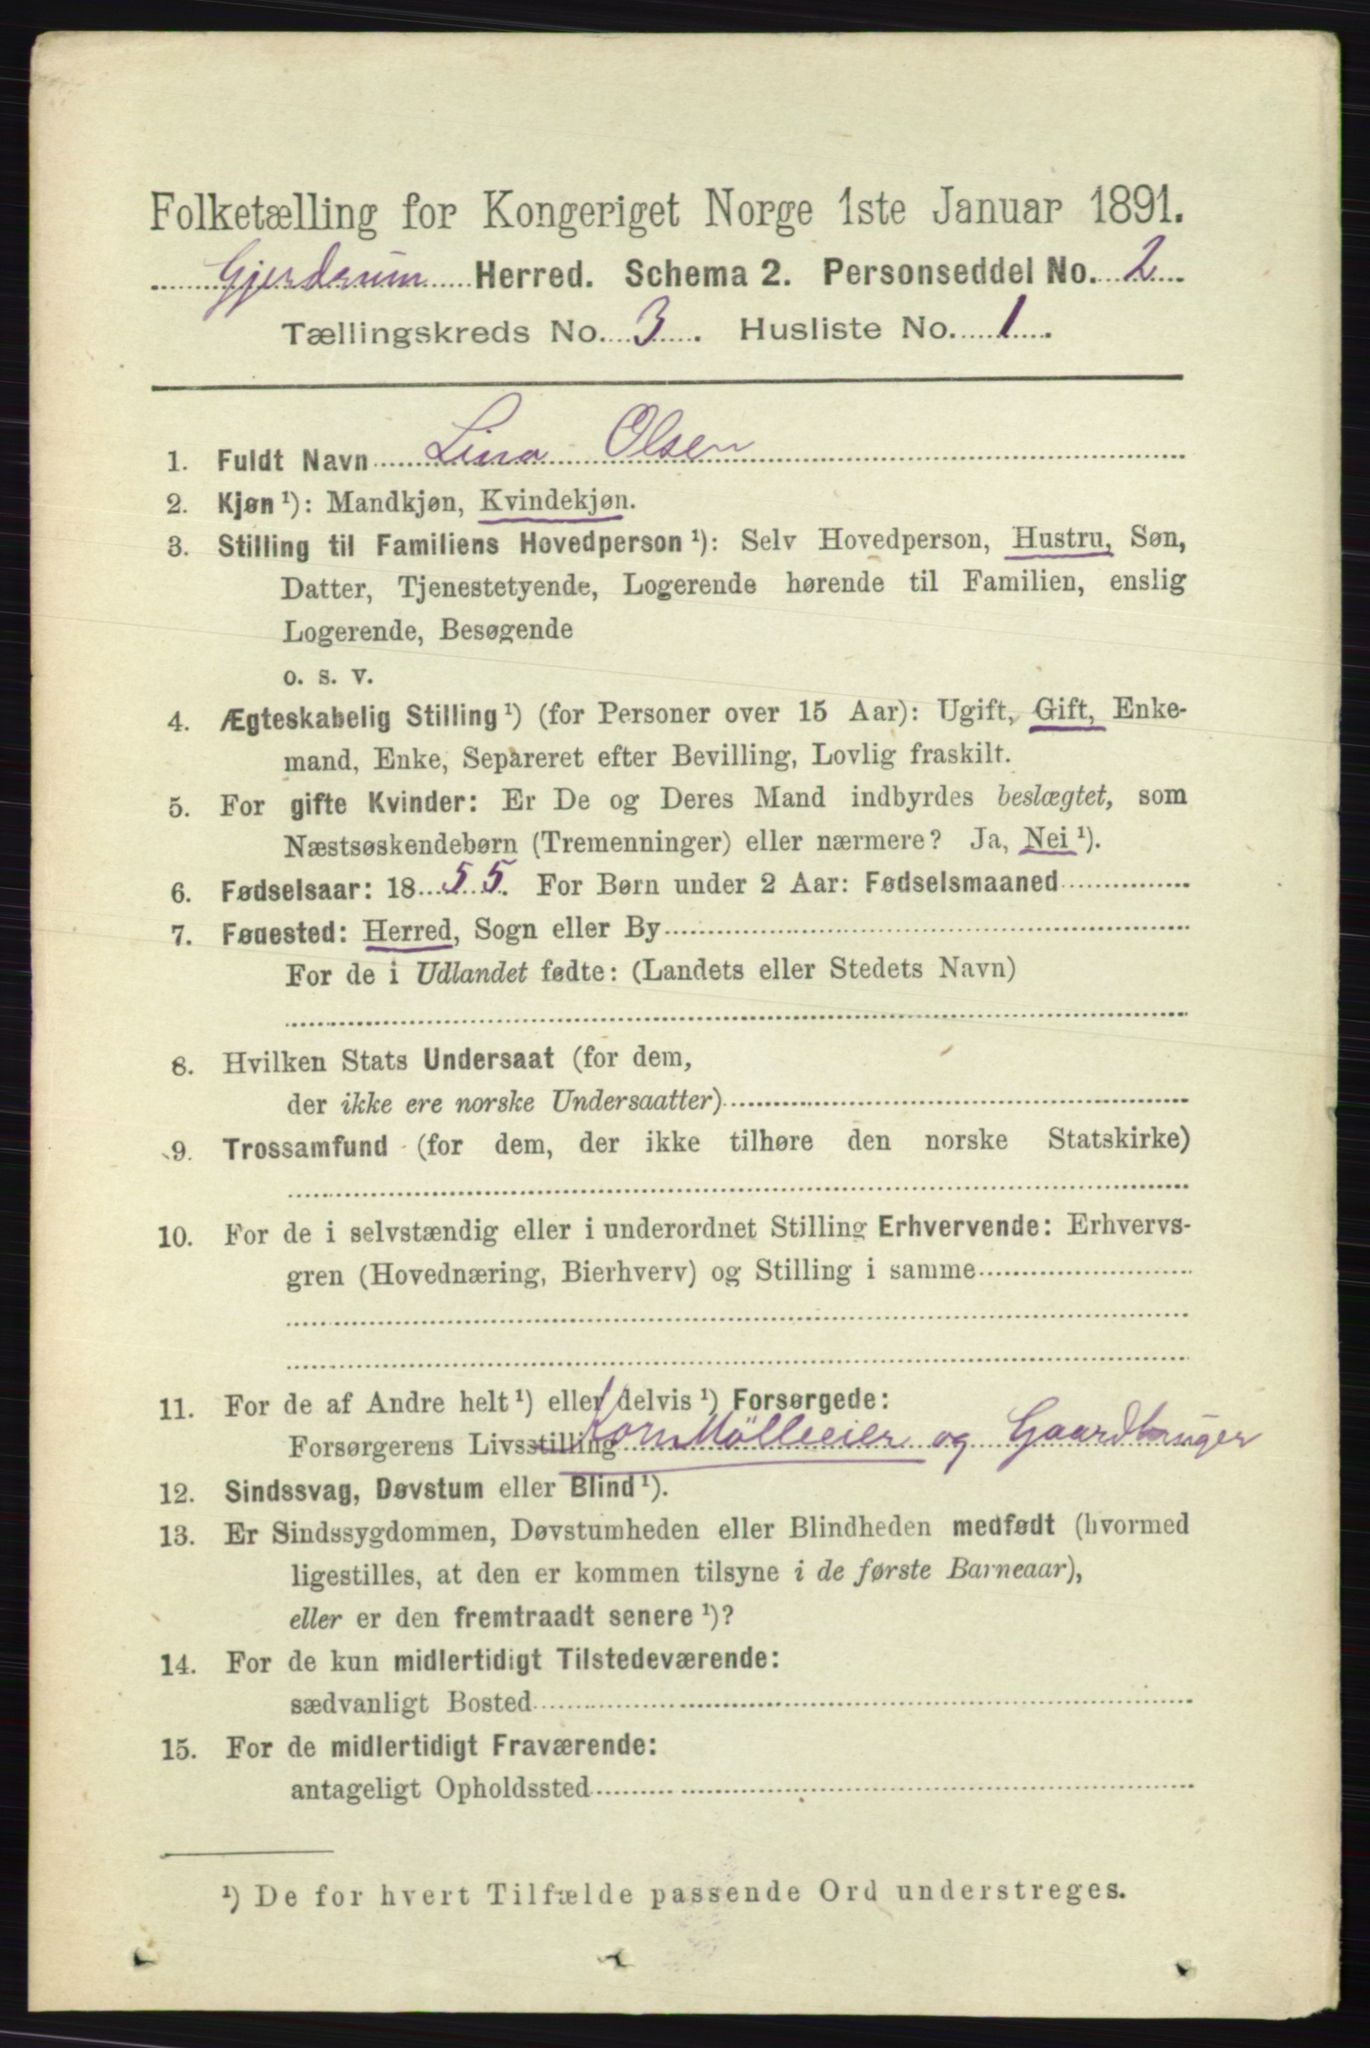 Folketælling for Kongeriget Norge 1ste Januar 1891.
Gjerdrum Herred. Schema 2. Personseddel No. 2
Tællingskreds No. 3. Husliste No. 1.
1. Fuldt Navn Lina Olsen
2. Kjøn ¹): Mandkjøn, Kvindekjøn.
3. Stilling til Familiens Hovedperson ¹): Selv Hovedperson, Hustru, Søn,
Datter, Tjenestetyende, Logerende hørende til Familien, enslig
Logerende, Besøgende
o. s. v.
4. Ægteskabelig Stilling ¹) (for Personer over 15 Aar): Ugift, Gift, Enke-
mand, Enke, Separeret efter Bevilling, Lovlig fraskilt.
5. For gifte Kvinder: Er De og Deres Mand indbyrdes beslægtet, som
Næstsøskendebørn (Tremenninger) eller nærmere? Ja, Nei ¹).
6. Fødselsaar: 1855. For Børn under 2 Aar: Fødselsmaaned
7. Føuested: Herred, Sogn eller By
For de i Udlandet fødte: (Landets eller Stedets Navn)
8. Hvilken Stats Undersaat (for dem,
der ikke ere norske Undersaatter)
9. Trossamfund (for dem, der ikke tilhøre den norske Statskirke)
10. For de i selvstændig eller i underordnet Stilling Erhvervende: Erhvervs-
gren (Hovednæring, Bierhverv) og Stilling i samme
11. For de af Andre helt ¹) eller delvis ¹) Forsørgede:
Forsørgerens Livsstilling Korn Mölleeier og Gaardbruger
12. Sindssvag, Døvstum eller Blind ¹).
13. Er Sindssygdommen, Døvstumheden eller Blindheden medfødt (hvormed
ligestilles, at den er kommen tilsyne i de første Barneaar),
eller er den fremtraadt senere ¹)?
14. For de kun midlertidigt Tilstedeværende:
sædvanligt Bosted
15. For de midlertidigt Fraværende:
antageligt Opholdssted
¹) De for hvert Tilfælde passende Ord understreges.